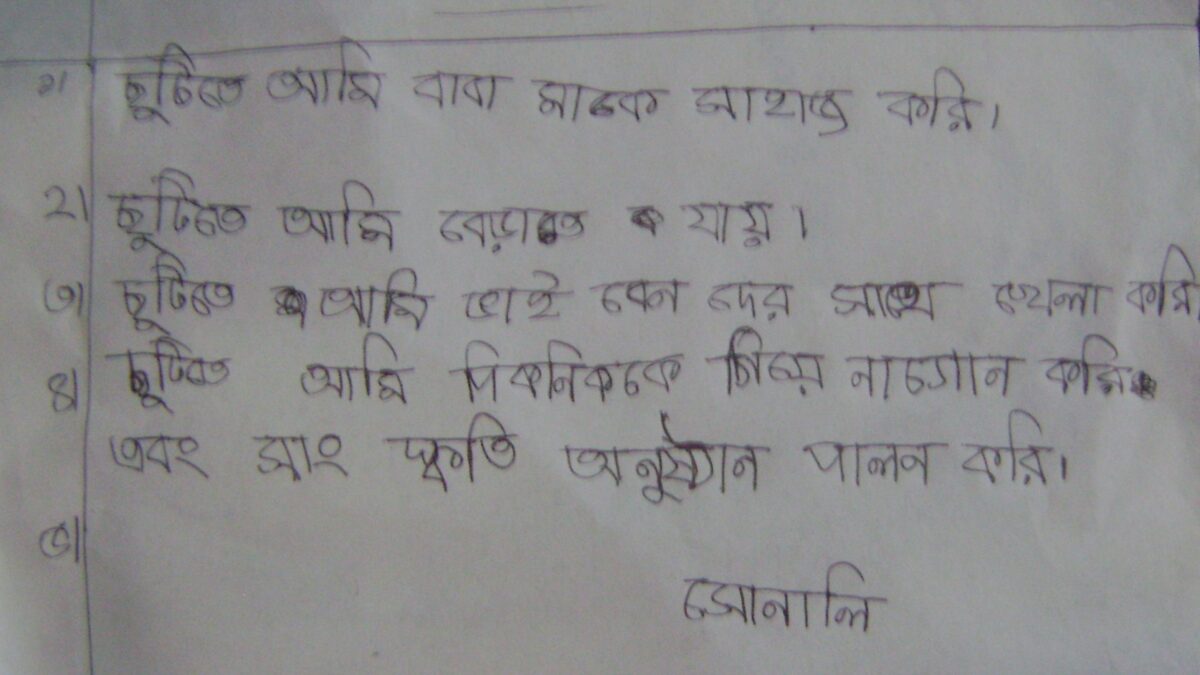 ১। ছুটিতে আমি বাবা মাকে সাহায্য করি।
২। ছুটিতে আমি বেড়াতে যায়।
৩। ছুটিতে আমি ভাই বোন দের সাথে খেলা করি
৪। ছুটিতে আমি পিকনিকে গিয়ে নাচগান করি
এবং সাং স্কৃতি অনুষ্ঠান পালন করি।
৫।
সোনালি